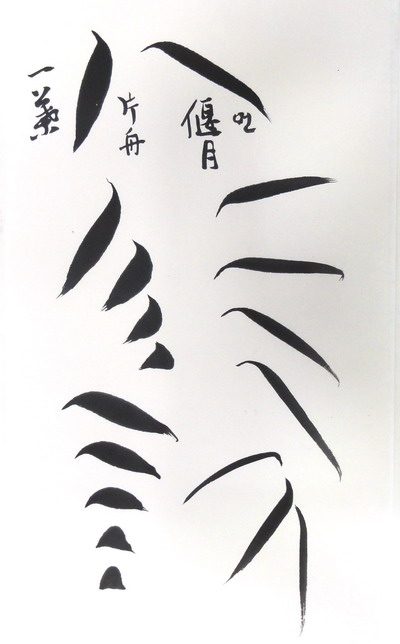 一葉
片舟
偃月